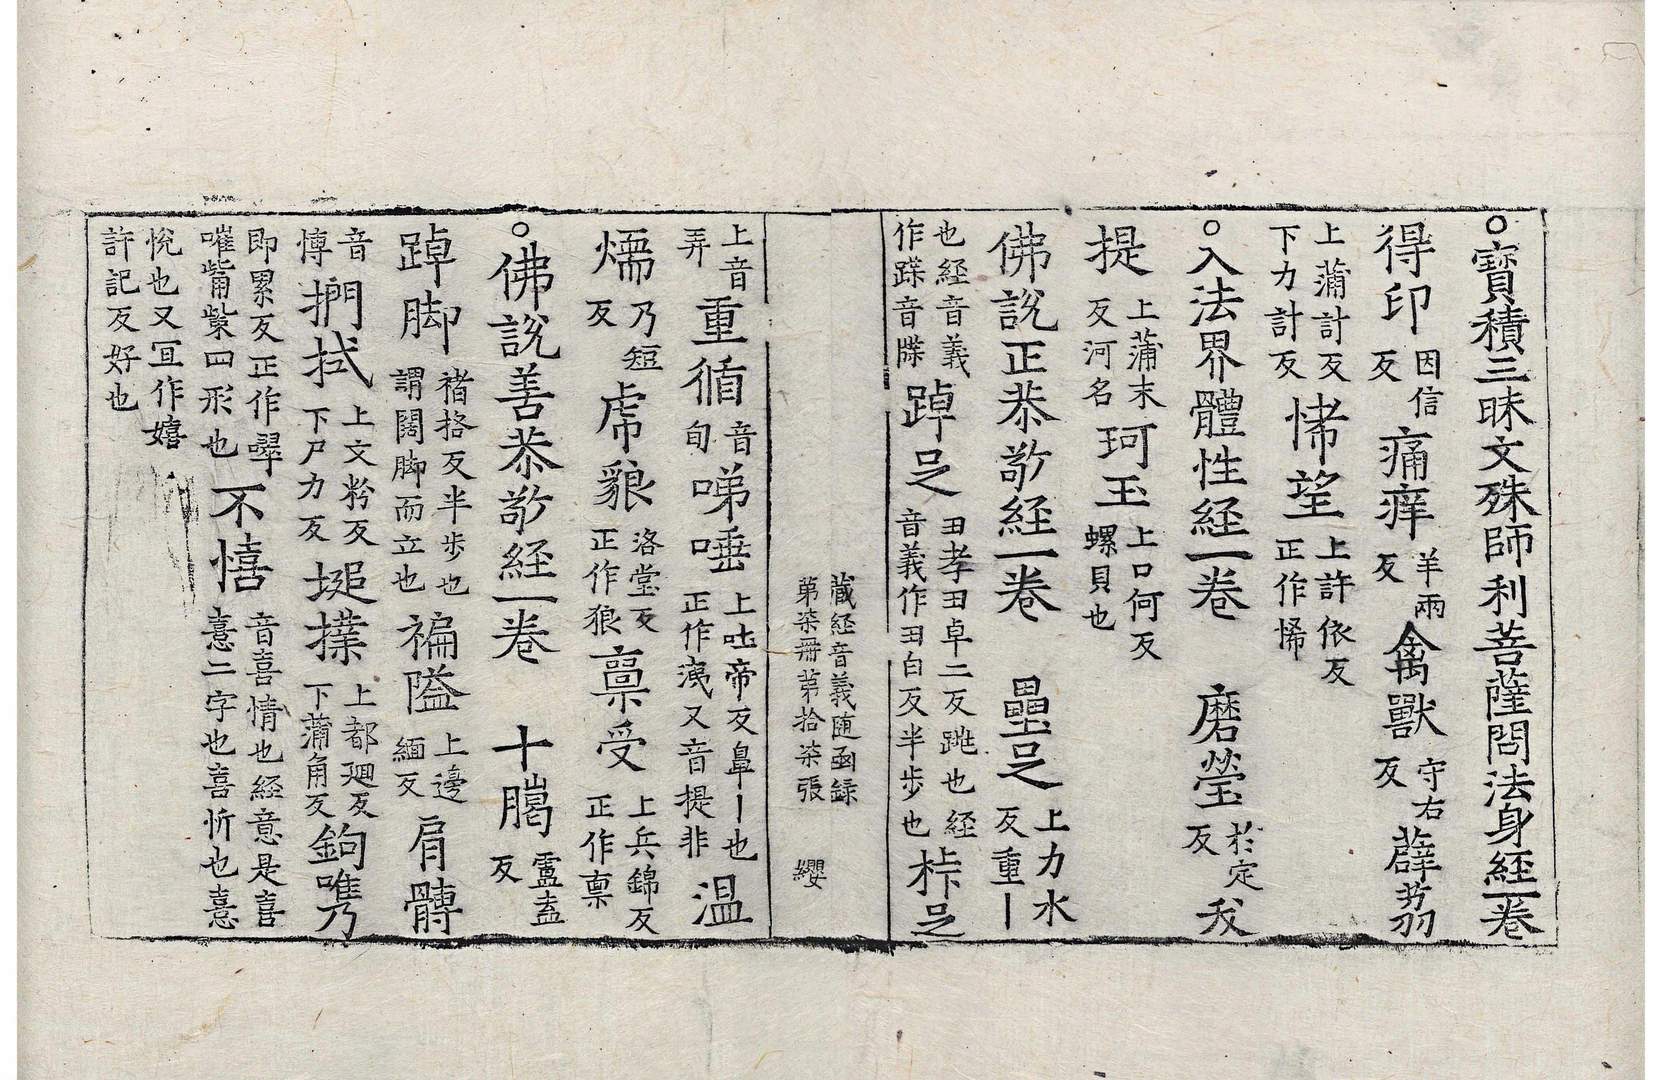 ○寶積三昧文殊師利菩薩問法身經一卷
得印因信反痛痒羊兩反禽獸守右反薜荔
上蒲計反下力計反悕望上許依反正作悕
○入法界體性經一卷　磨瑩於定反　㧞
提上蒲末反河名珂玉上口何反螺貝也
佛說正恭敬経一卷　壘足上力水反重丨
也経音義作蹀音牒踔足丑孝丑卓二反跳也経音義作丑白反半步也㭚足
上音弄重循音旬啼唾上吐帝反鼻丨也正作洟又音提非温
藏経音義随函録
第柒冊第拾柒張　纓
煗乃短反虎貌洛堂反正作狼稟受上兵錦反正作禀
○佛說善恭敬経一卷　十臈盧盍反
踔脚褚格反半步也謂闊脚而立也褊隘上邊緬反肩髆
音博捫拭上文粉反下尸力反塠撲上都廻反下蒲角反鉤嘴
即累反正作㭰嗺觜紫四形也不憘音喜情也経意是喜憙二字也喜忻也憙
悅也又宜作嬉許記反好也